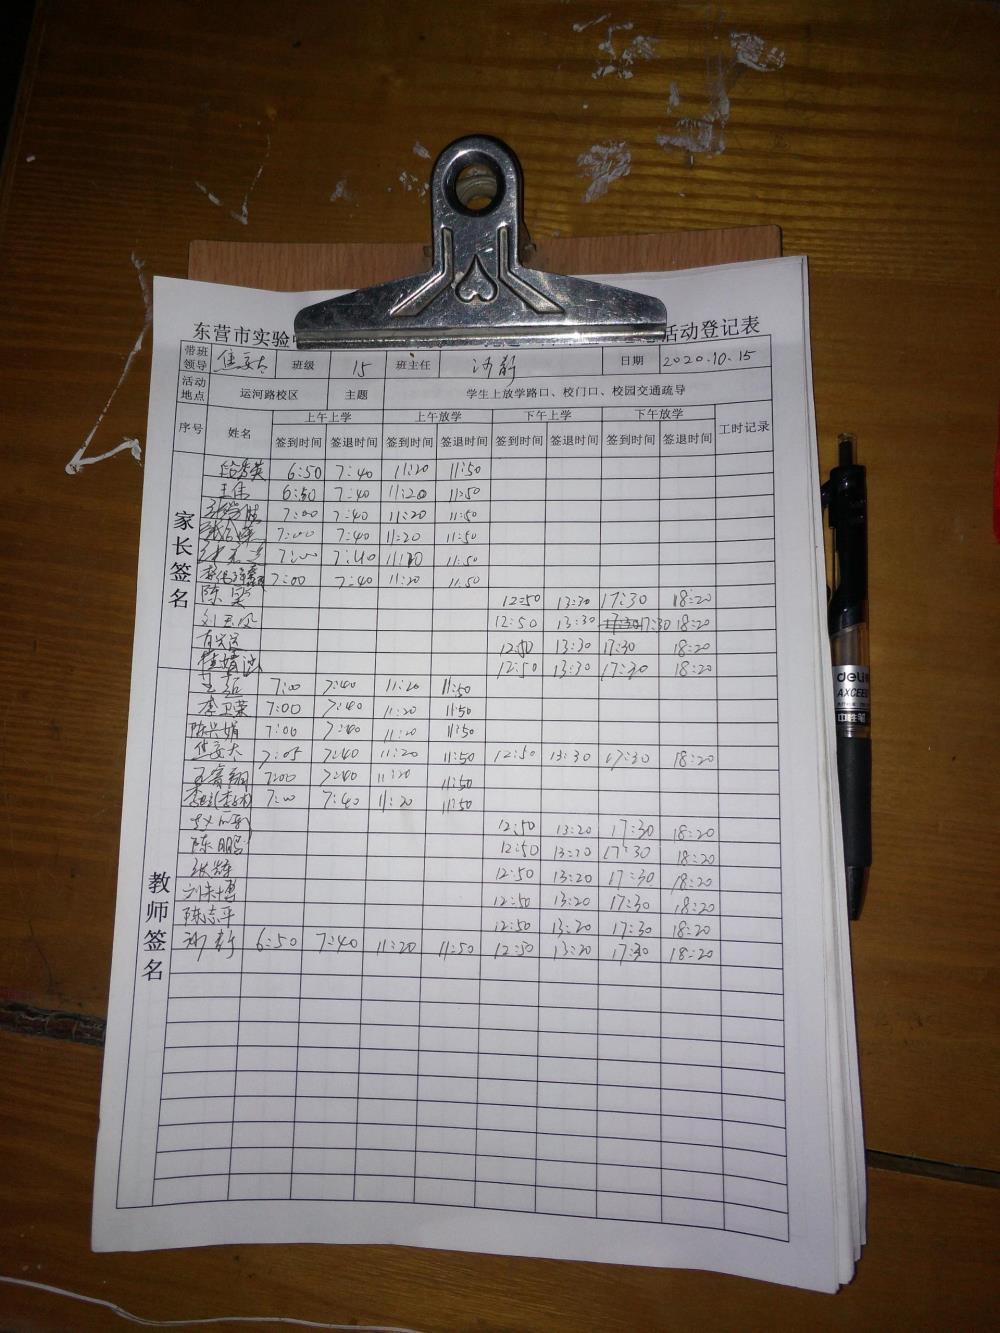 东营市实验 活动登记表
带班领导 焦安太 班级 15 班主任 日期 2020.10.15
活动地点 运河路校区 主题 学生上放学路口、校门口、校园交通疏导
序号 姓名 上午上学 上午放学 下午上学 下午放学 工时记录
签到时间 签退时间 签到时间 签退时间 签到时间 签退时间 签到时间 签退时间
家长签名
6:50 7:40 11:20 11:50
王伟 6:50 7:40 11:20 11:50
7:00 7:40 11:20 11:50
7:00 7:40 11:20 11:50
7:00 7:40 11:20 11:50
7:00 7:40 11:20 11:50
陈 12:50 13:30 17:30 18:20
刘 12:50 13:30 17:30 18:20
12:50 13:30 17:30 18:20
12:50 13:30 17:30 18:20
教师签名
7:00 7:40 11:20 11:50
李卫荣 7:00 7:40 11:20 11:50
陈兴娟 7:00 7:40 11:20 11:50
焦安太 7:05 7:40 11:20 11:50 12:50 13:30 17:30 18:20
7:00 7:40 11:20 11:50
7:00 7:40 11:20 11:50
12:50 13:20 17:30 18:20
陈鹏 12:50 13:20 17:30 18:20
12:50 13:20 17:30 18:20
12:50 13:20 17:30 18:20
陈志平 12:50 13:20 17:30 18:20
6:50 7:40 11:20 11:50 12:50 13:20 17:30 18:20
deli
AXCEE
中性笔